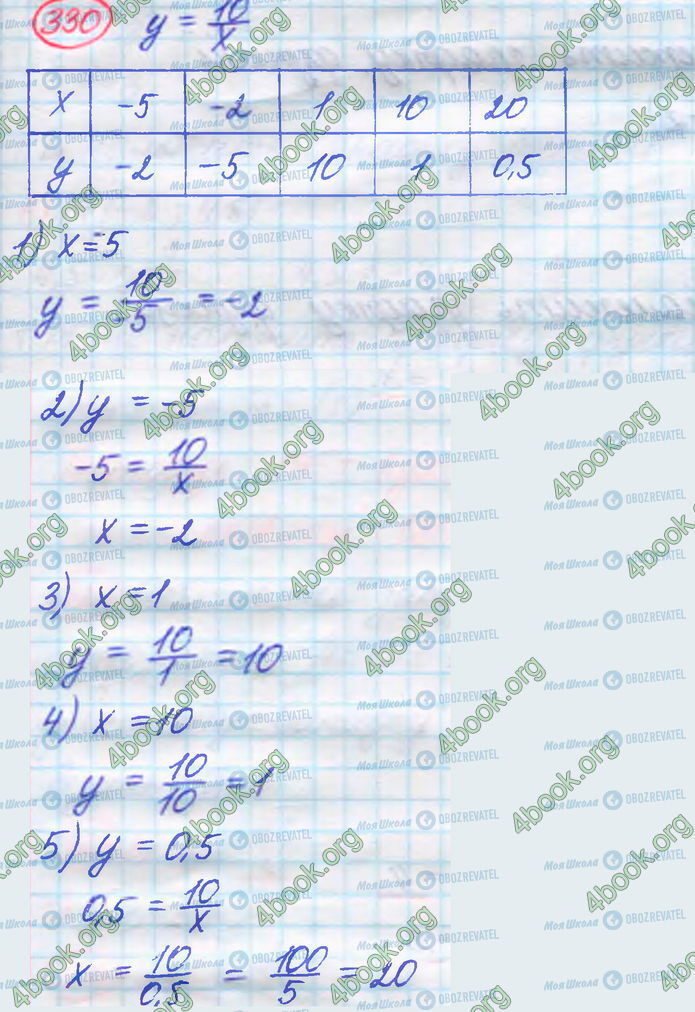 330 y = 10/x
x -5 -2 1 10 20
y -2 -5 10 1 0,5
1) x=-5
y = 10/-5 = -2
2) y = -5
-5 = 10/x
x = -2
3) x=1
y = 10/1 = 10
4) x = 10
y = 10/10 = 1
5) y = 0,5
0,5 = 10/x
x = 10/0,5 = 100/5 = 20
4book.org
Моя Школа OBOZREVATEL